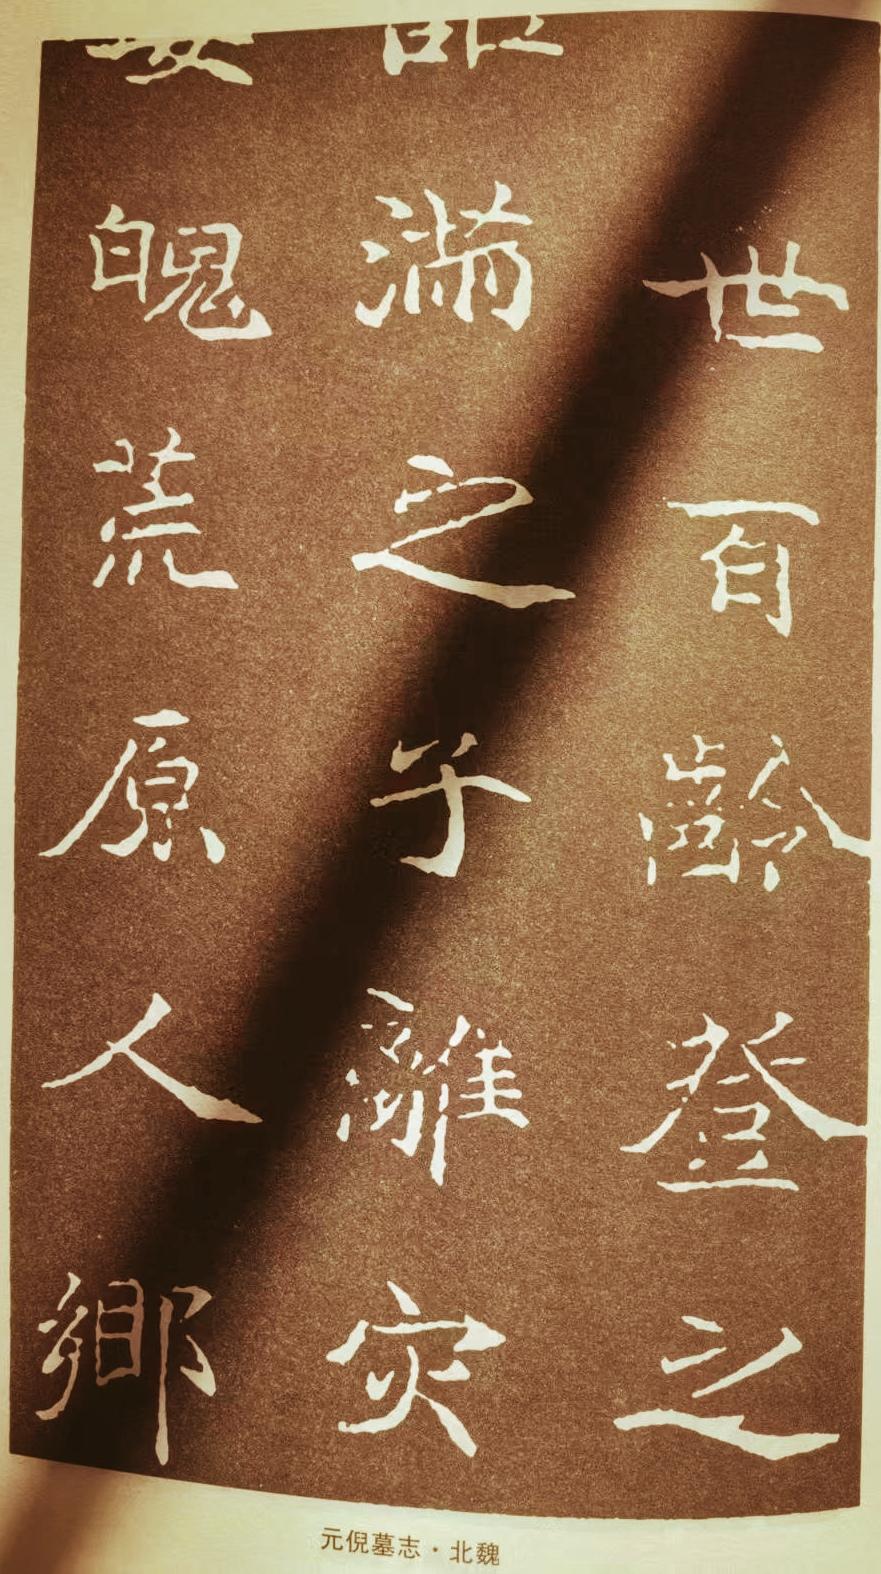 世百齡登之
滿之子離灾
魄荒原人鄉
元倪墓志·北魏